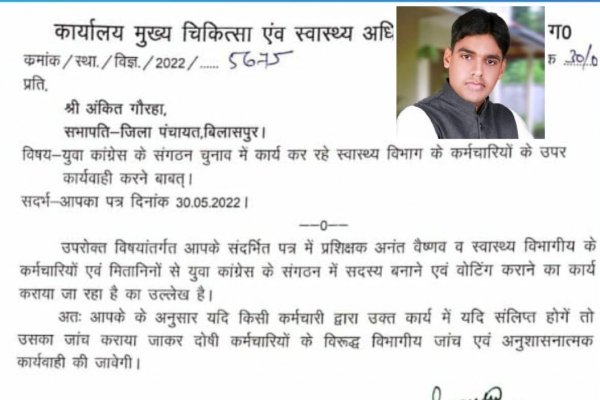 कार्यालय मुख्य चिकित्सा एंव स्वास्थ्य अधि ग0
कमांक / स्था. / विज्ञ. / 2022 / ...... 5675 क 30/0
प्रति,
श्री अंकित गौरहा,
सभापति–जिला पंचायत,बिलासपुर।
विषय–युवा कांग्रेस के संगठन चुनाव में कार्य कर रहे स्वास्थ्य विभाग के कर्मचारियों के उपर
कार्यवाही करने बाबत्।
सदर्भ–आपका पत्र दिनांक 30.05.2022।
—0—
उपरोक्त विषयांतर्गत आपके संदर्भित पत्र में प्रशिक्षक अनंत वैष्णव व स्वास्थ्य विभागीय के
कर्मचारियों एवं मितानिनों से युवा कांग्रेस के संगठन में सदस्य बनाने एवं वोटिंग कराने का कार्य
कराया जा रहा है का उल्लेख है।
अतः आपके के अनुसार यदि किसी कर्मचारी द्वारा उक्त कार्य में यदि संलिप्त होगें तो
उसका जांच कराया जाकर दोषी कर्मचारियों के विरूद्ध विभागीय जांच एवं अनुशासनात्मक
कार्यवाही की जावेगी।